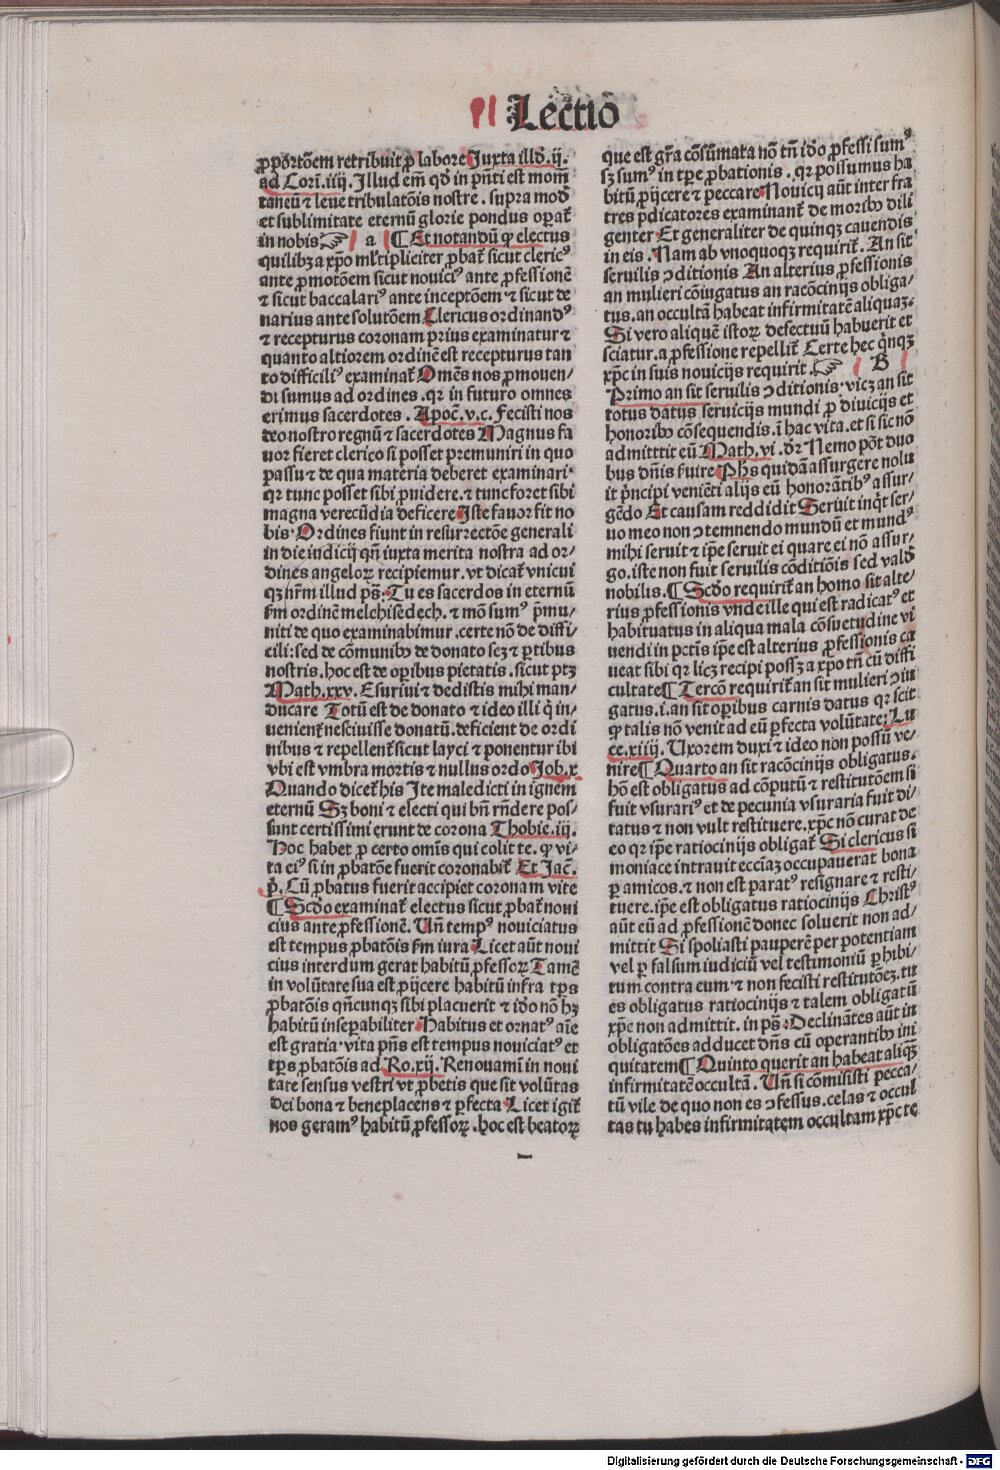 Lectio
ꝓporc̄oem retribuit ꝓ labore Juxta illd̄. ij.
ad Corī. iiij. Illud em̄ qd̄ in pn̄ti est mom̄
taneū ⁊ leue tribulatōis nostre . supra mod̄
et sublimitate eternū glorie pondus opat̄
in nobis ☞ a ¶ Et notandū ꝙ electus
quilibꝫ a xp̄o ml̄tipliciter ꝓbat̄ sicut clericꝰ
ante ꝓmotōem sicut nouiciꝰ ante ꝓfessionē
⁊ sicut baccalariꝰ ante inceptōem ⁊ sicut de
narius ante solutōem Clericus ordinandꝰ
⁊ recepturus coronam prius examinatur ⁊
quanto altiorem ordinē est recepturus tan
to difficiliꝰ examinat̄ Omēs nos ꝓmouen/
di sumus ad ordines . qr in futuro omnes
erimus sacerdotes . Apoc̄. v. c. Fecisti nos
deo nostro regnū ⁊ sacerdotes Magnus fa
uor fieret clerico si posset premuniri in quo
passu ⁊ de qua materia deberet examinari·
qr tunc posset sibi ꝓuidere . ⁊ tunc foret sibi
magna verecūdia deficere Iste fauor fit no
bis· Ordines fiunt in resurrectōe generali
in die iudicij qn̄ iuxta merita nostra ad or/
dines angeloꝝ recipiemur . vt dicat̄ vnicui
qꝫ nr̄m illud ps̄. Tu es sacerdos in eternū
ẜm ordinē melchisedech. ⁊ mō sumꝰ p̄mu/
niti de quo examinabimur . certe nō de diffi/
cili: sed de cōmunibꝫ de donato scꝫ ⁊ ꝑtibus
nostris . hoc est de oꝑibus pietatis . sicut ptꝫ
Math. xxv. Esuriui ⁊ dedistis mihi man/
ducare Totū est de donato ⁊ ideo illi q̇ in/
uenient̄ nesciuisse donatū . deficient de ordi
nibus ⁊ repellent̄ sicut layci ⁊ ponentur ibi
vbi est vmbra mortis ⁊ nullus ordo Job. x.
Quando dicet̄ his Ite maledicti in ignem
eternū Sꝫ boni ⁊ electi qui bn̄ rn̄dere pos/
sunt certissimi erunt de corona Thobie. iij.
Hoc habet ꝓ certo omīs qui colit te . ꝙ vi/
ta eiꝰ si in ꝓbatōe fuerit coronabit̄ Et Jac̄.
p̄. Cū ꝓbatus fuerit accipiet coronam vite
¶ Scd̄o examinat̄ electus sicut ꝓbat̄ noui
cius ante ꝓfessionē . Un̄ tempꝰ nouiciatus
est tempus ꝓbatōis ẜm iura Licet aūt noui
cius interdum gerat habitū ꝓfessoꝝ Tamē
in volūtate sua est ꝓijcere habitū infra tp̄s
ꝓbatōis qn̄cunqꝫ sibi placuerit ⁊ id̄o nō hꝫ
habitū inseꝑabiliter Habitus et ornatꝰ aīe
est gratia · vita pn̄s est tempus nouiciatꝰ et
tp̄s ꝓbatōis ad Ro. xij. Renouamī in noui
tate sensus vestri vt ꝓbetis que sit volūtas
dei bona ⁊ beneplacens ⁊ ꝑfecta Licet igit̄
nos geramꝰ habitū ꝓfessoꝝ . hoc est beatoꝝ
que est gr̄a cōsūmata nō tn̄ id̄o ꝓfessi sumꝰ
sꝫ sumꝰ in tp̄e ꝓbationis . qr possumus ha
bitū ꝓijcere ⁊ peccare Nouicij aūt inter fra
tres p̄dicatores examinant̄ de moribꝫ dili
genter Et generaliter de quinqꝫ cauendis
in eis . Nam ab vnoquoqꝫ requirit̄. An sit
seruilis ↄditionis An alterius ꝓfessionis
an mulieri cōiugatus an racōcinijs obliga/
tus . an occultā habeat infirmitatē aliquaꝫ.
Si vero aliquē istoꝝ defectuū habuerit et
sciatur . a ꝓfessione repellit̄ Certe hec q̇nqꝫ
xp̄c in suis nouicijs requirit . ☞ B
Primo an sit seruilis ↄditionis · vicꝫ an sit
totus datus seruicijs mundi ꝓ diuicijs et
honoribꝫ cōsequendis . ī hac vita . et si sic nō
admittit eū Math. vi. dr̄ Nemo pōt duo
bus dn̄is ẜuire Ph̄s quidā assurgere nolu
it p̄ncipi veniēti alijs eū honorātibꝰ assur/
gēdo Et causam reddidit Seruit inq̇t ser/
uo meo non ↄtemnendo mundū et mundꝰ
mihi seruit ⁊ ip̄e seruit ei quare ei nō assur/
go . iste non fuit seruilis cōditiōis sed vald̄
nobilis . ¶ Scd̄o requirit̄ an homo sit alte/
rius ꝓfessionis vnde ille qui est radicatꝰ et
habituatus in aliqua mala cōsuetudine vi
uendi in pctīs ip̄e est alterius ꝓfessionis ca
ueat sibi qr licꝫ recipi possꝫ a xp̄o tn̄ cū diffi
cultate ¶ Tercō requirit̄ an sit mulieri ↄiu
gatus . i. an sit oꝑibus carnis datus qr scit
ꝙ talis nō venit ad eū ꝑfecta volūtate: Lu
ce. xiiij. Uxorem duxi ⁊ ideo non possū ve/
nire ¶ Quarto an sit racōcinijs obligatus .
hō est obligatus ad cōputū ⁊ restitutōem si
fuit vsurariꝰ et de pecunia vsuraria fuit di/
tatus ⁊ non vult restituere . xp̄c nō curat de
eo qr ip̄e ratiocinijs obligat̄ Si clericus si
moniace intrauit ecc̄iaꝫ occupauerat bona
ꝑ amicos . ⁊ non est paratꝰ resignare ⁊ resti/
tuere . ip̄e est obligatus ratiocinijs Christꝰ
aūt eū ad ꝓfessionē donec soluerit non ad/
mittit Si spoliasti pauperē per potentiam
vel ꝑ falsum iudiciū vel testimoniū ꝑhibi/
tum contra eum · ⁊ non fecisti restitutōeꝫ . tu
es obligatus ratiocinijs ⁊ talem obligatū
xp̄c non admittit . in ps̄: Declinātes aūt in
obligatōes adducet dn̄s cū operantibꝫ ini
quitatem ¶ Quinto querit an habeat aliqꝫ
infirmitatē occultā . Un̄ si cōmisisti pecca/
tū vile de quo non es ↄfessus . celas ⁊ occul
tas tu habes infirmitatem occultam xp̄c te
Digitalisierung gefördert durch die Deutsche Forschungsgemeinschaft - DFG